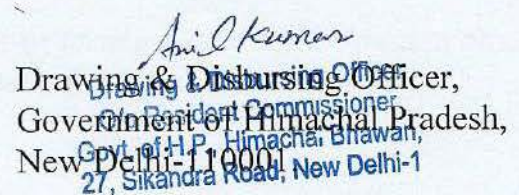 Anil Kumar
Drawing & Disbursing Officer,
Government of Himachal Pradesh,
New Delhi-110001.
Drawing & Disbursing Officer
O/o Resident Commissioner
Govt. of H.P., Himachal Bhawan,
27, Sikandra Road, New Delhi-1